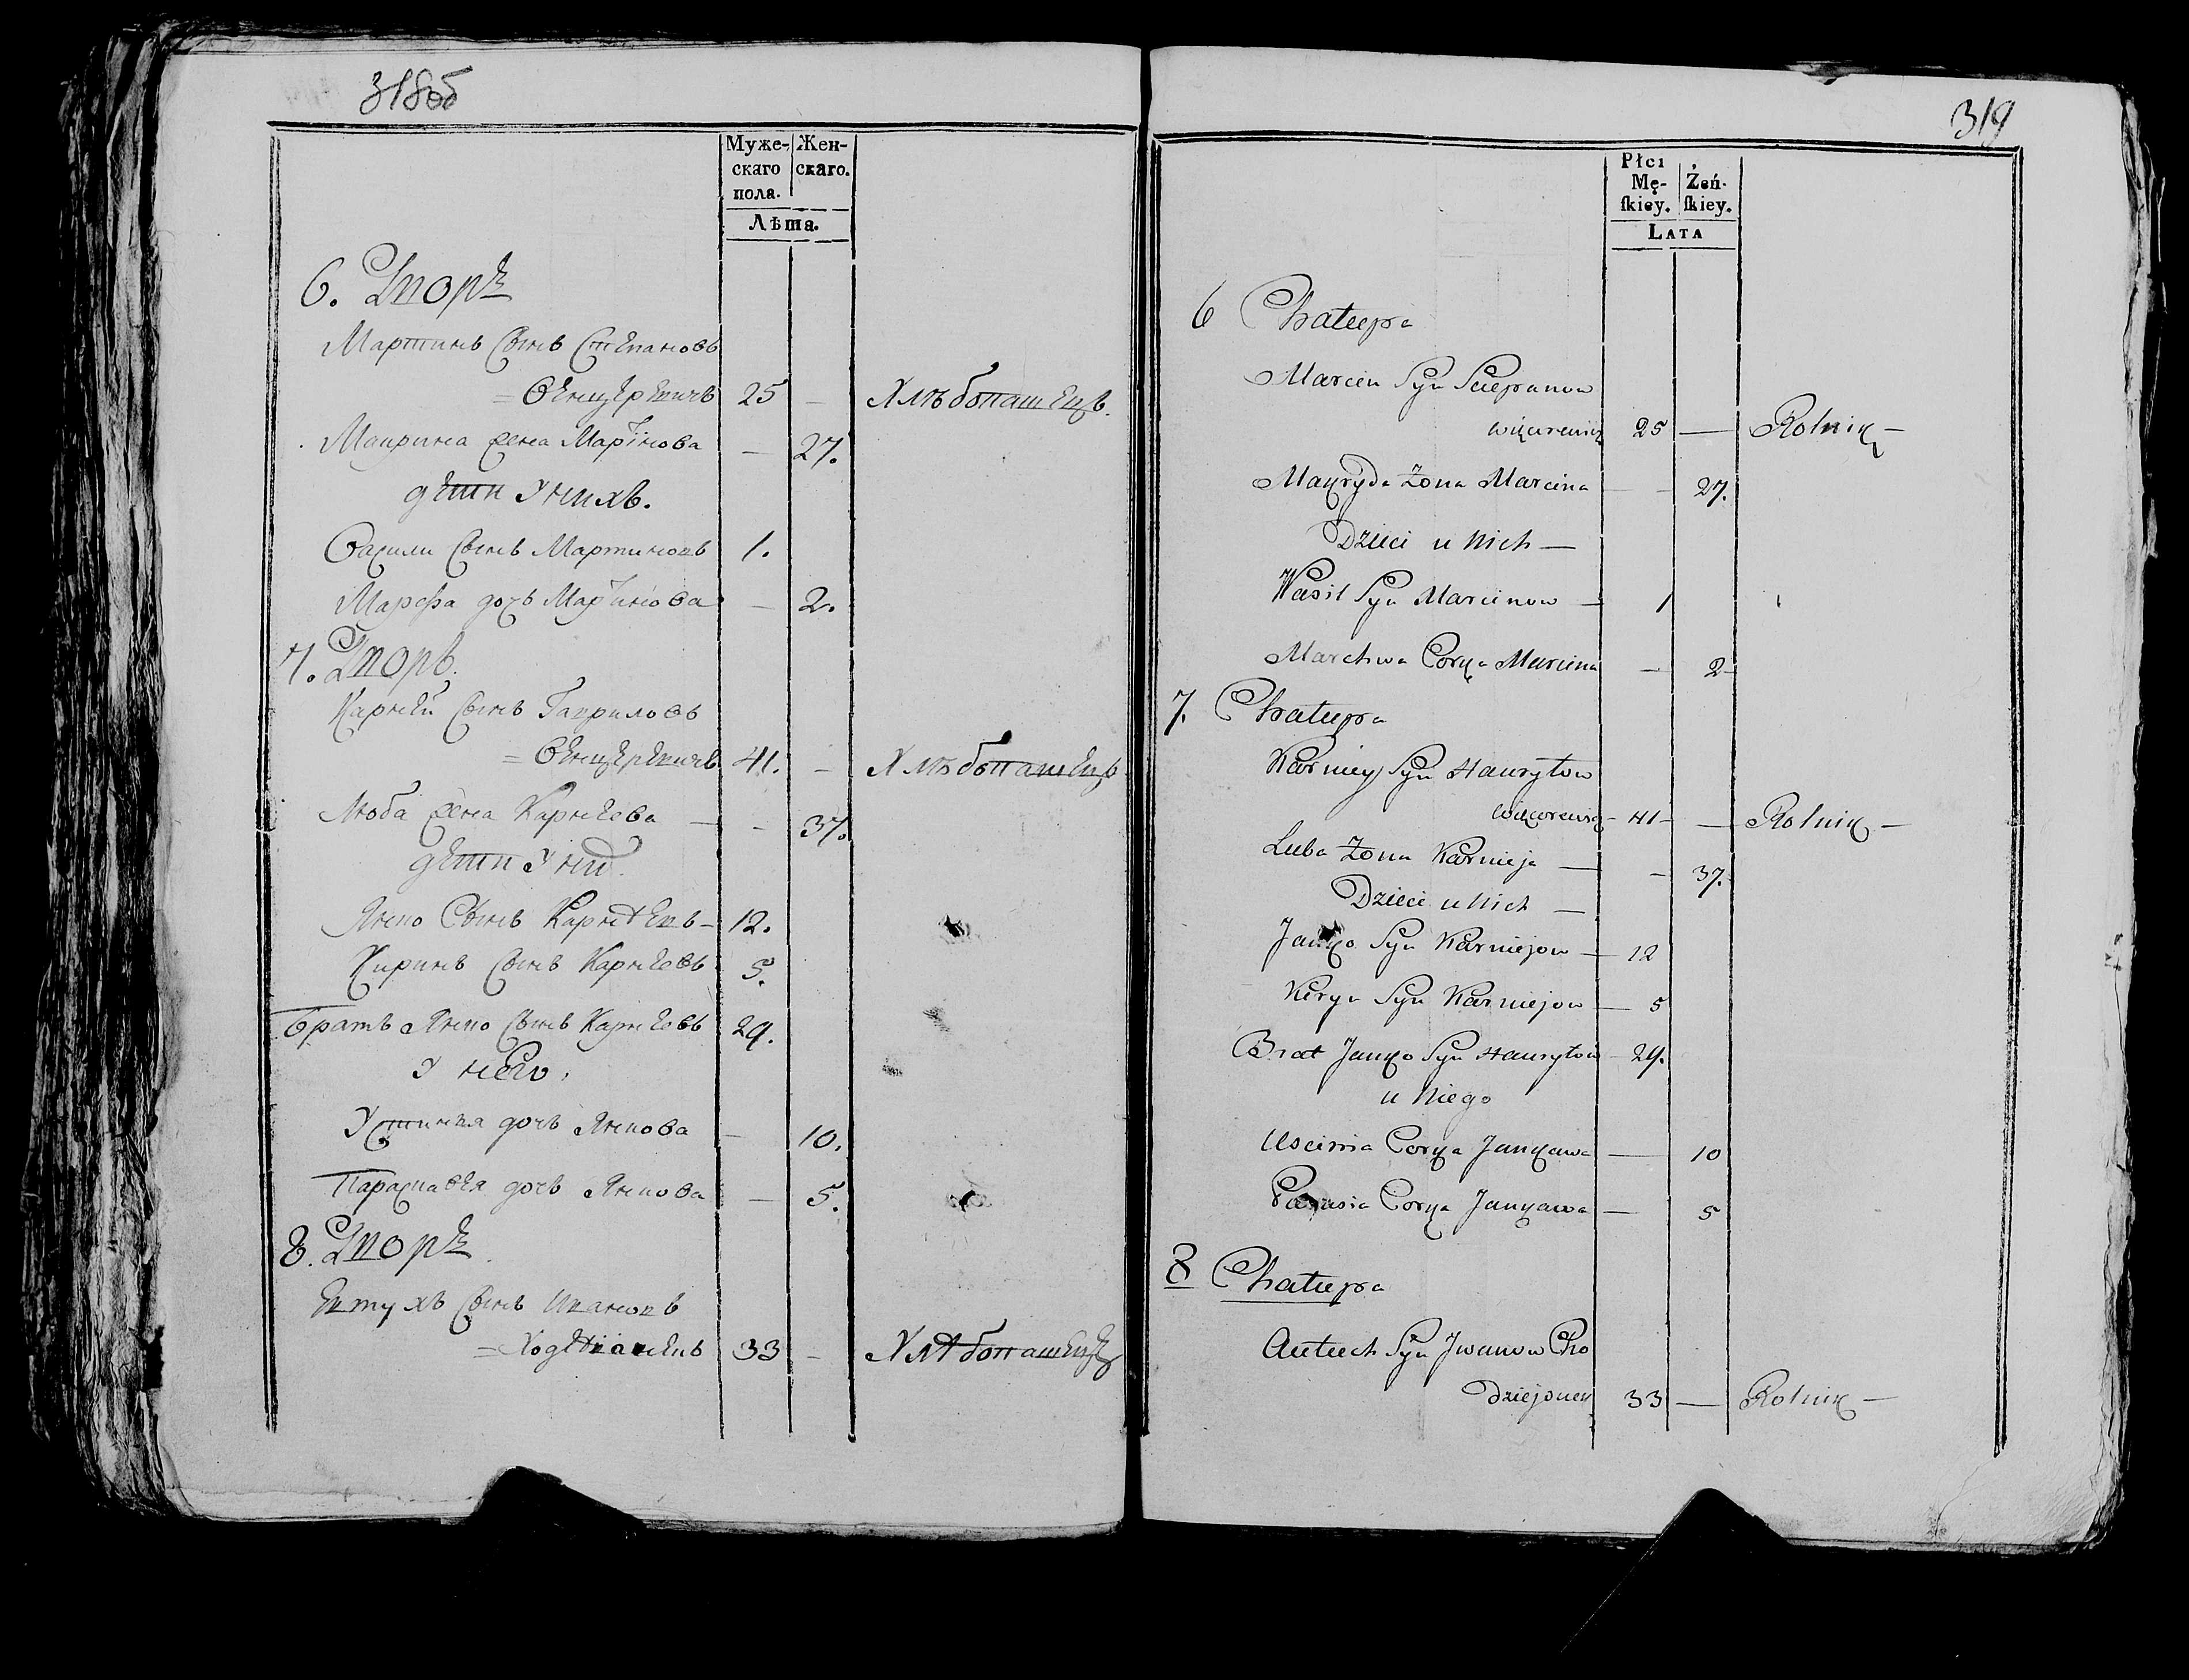 318об
Муже-
скаго
пола.
Жен-
скаго.
Лѣта.
6. Дворъ
Мартинъ Сынъ Степановъ
= Венцеревичъ 25 — Хлѣбопашецъ.
Маврина жена Мартінова — 27.
дети У нихъ.
Васили Сынъ Мартиновъ 1.
Марфа дочь Мартинова — 2.
7. Дворъ.
Карней Сынъ Гавриловъ
= Венцеревичъ 41. — Хлѣбопашецъ
Люба жена Карнеева — — 37.
дети У них.
Янко Сынъ Карнѣевъ — 12.
Киринъ Сынъ Карнеевъ 5.
Братъ Янко Сынъ Карнеевъ 29.
У него.
Устинья дочь Янкова — 10.
Параскавея дочь Янкова — 5.
8. Дворъ.
Евтухъ Сынъ Ивановъ
= Ходѣіанецъ 33 — Хлѣбопашецъ
319
Płci
Mę-
ſkiey.
Żeń-
ſkiey.
LATA
6 Chałupa
Marcin Syn Sciepanow
25 — Rolnik —
Mauryda Żona Marcina — — 27.
Dzieci u Nich —
Wasil Syn Marcinow — 1
Marchwa Corka Marcina — 2
7. Chałupa
Karniey Syn Hauryłow
— 41 — — Rolnik —
Luba Żona Karnieja — — 37.
Dzieci u Nich —
Janko Syn Karniejow — 12
Kiryn Syn Karniejow — 5
Brat Janko Syn Hauryłow — 29.
u Niego
Uscinia Corka Jankawa — 10
Parasia Corka Jankawa — 5
8 Chałupa
Autuch Syn Jwanow Cho
dziejonek 33 — Rolnik —